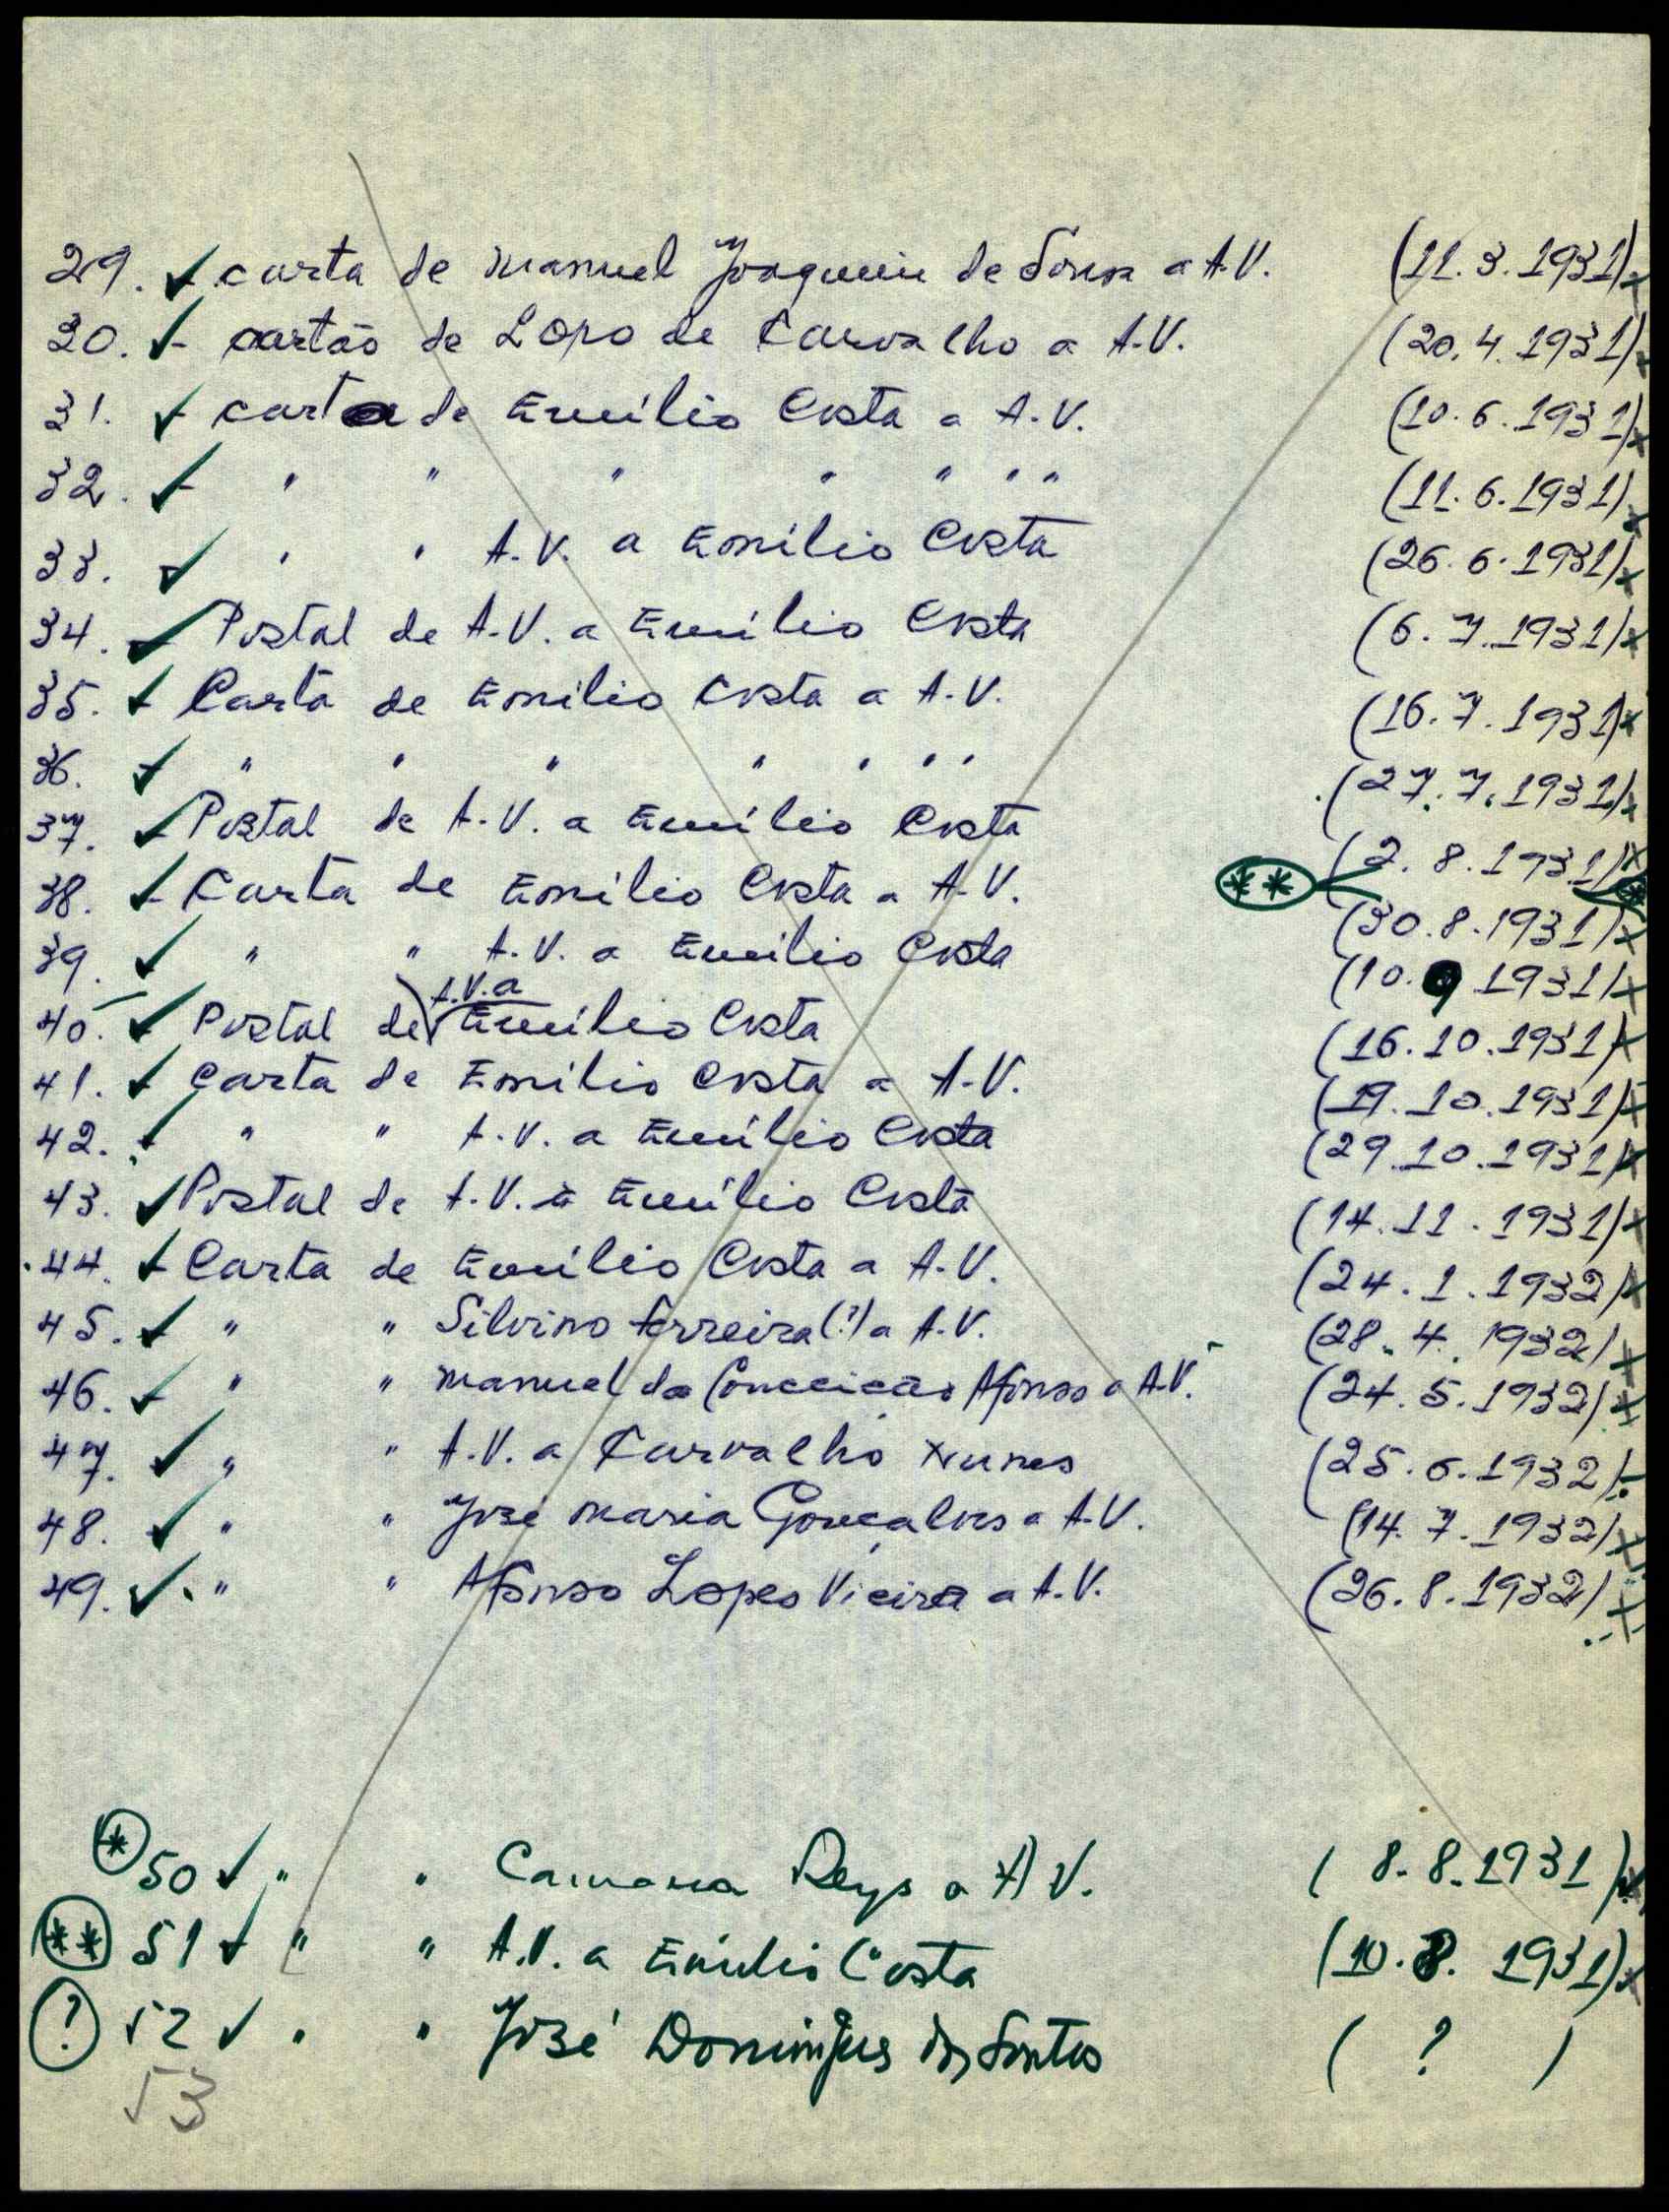 29. ✓ - carta de Manuel Joaquim de Sousa a A.V. (11.3.1931) x
30. ✓ - cartão de Lopo de Carvalho a A.V. (20.4.1931) x
31. ✓ - carta de Emílio Costa a A.V. (10.6.1931) x
32. ✓ - " " " " " " " (11.6.1931) x
33. ✓ - " " A.V. a Emílio Costa (26.6.1931) x
34. ✓ - Postal de A.V. a Emílio Costa (6.7.1931) x
35. ✓ - Carta de Emílio Costa a A.V. (16.7.1931) x
36. ✓ - " " " " " " " (27.7.1931) x
37. ✓ - Postal de A.V. a Emílio Costa (2.8.1931) x
** *
38. ✓ - Carta de Emílio Costa a A.V. (30.8.1931) x
39. ✓ - " " A.V. a Emílio Costa (10.9.1931) x
40. ✓ - Postal de A.V. a Emílio Costa (16.10.1931) x
41. ✓ - Carta de Emílio Costa a A.V. (19.10.1931) x
42. ✓ " " A.V. a Emílio Costa (29.10.1931) x
43. ✓ Postal de A.V. a Emílio Costa (14.11.1931) x
44. ✓ - Carta de Emílio Costa a A.V. (24.1.1932) x
45. ✓ - " " Silvino Ferreira (?) a A.V. (28.4.1932) x
46. ✓ - " " Manuel da Conceição Afonso a A.V. (24.5.1932) x
47. ✓ " " A.V. a Carvalho Nunes (25.6.1932) -
48. ✓ - " " José Maria Gonçalves a A.V. (14.7.1932) x
49. ✓ - " " Afonso Lopes Vieira a A.V. (26.8.1932) x
* 50 ✓ " " Camara Reys a A.V. (8.8.1931) x
** 51 ✓ - " " A.V. a Emílio Costa (10.8.1931) x
? 52 ✓ " " José Domingues dos Santos ( ? )
53